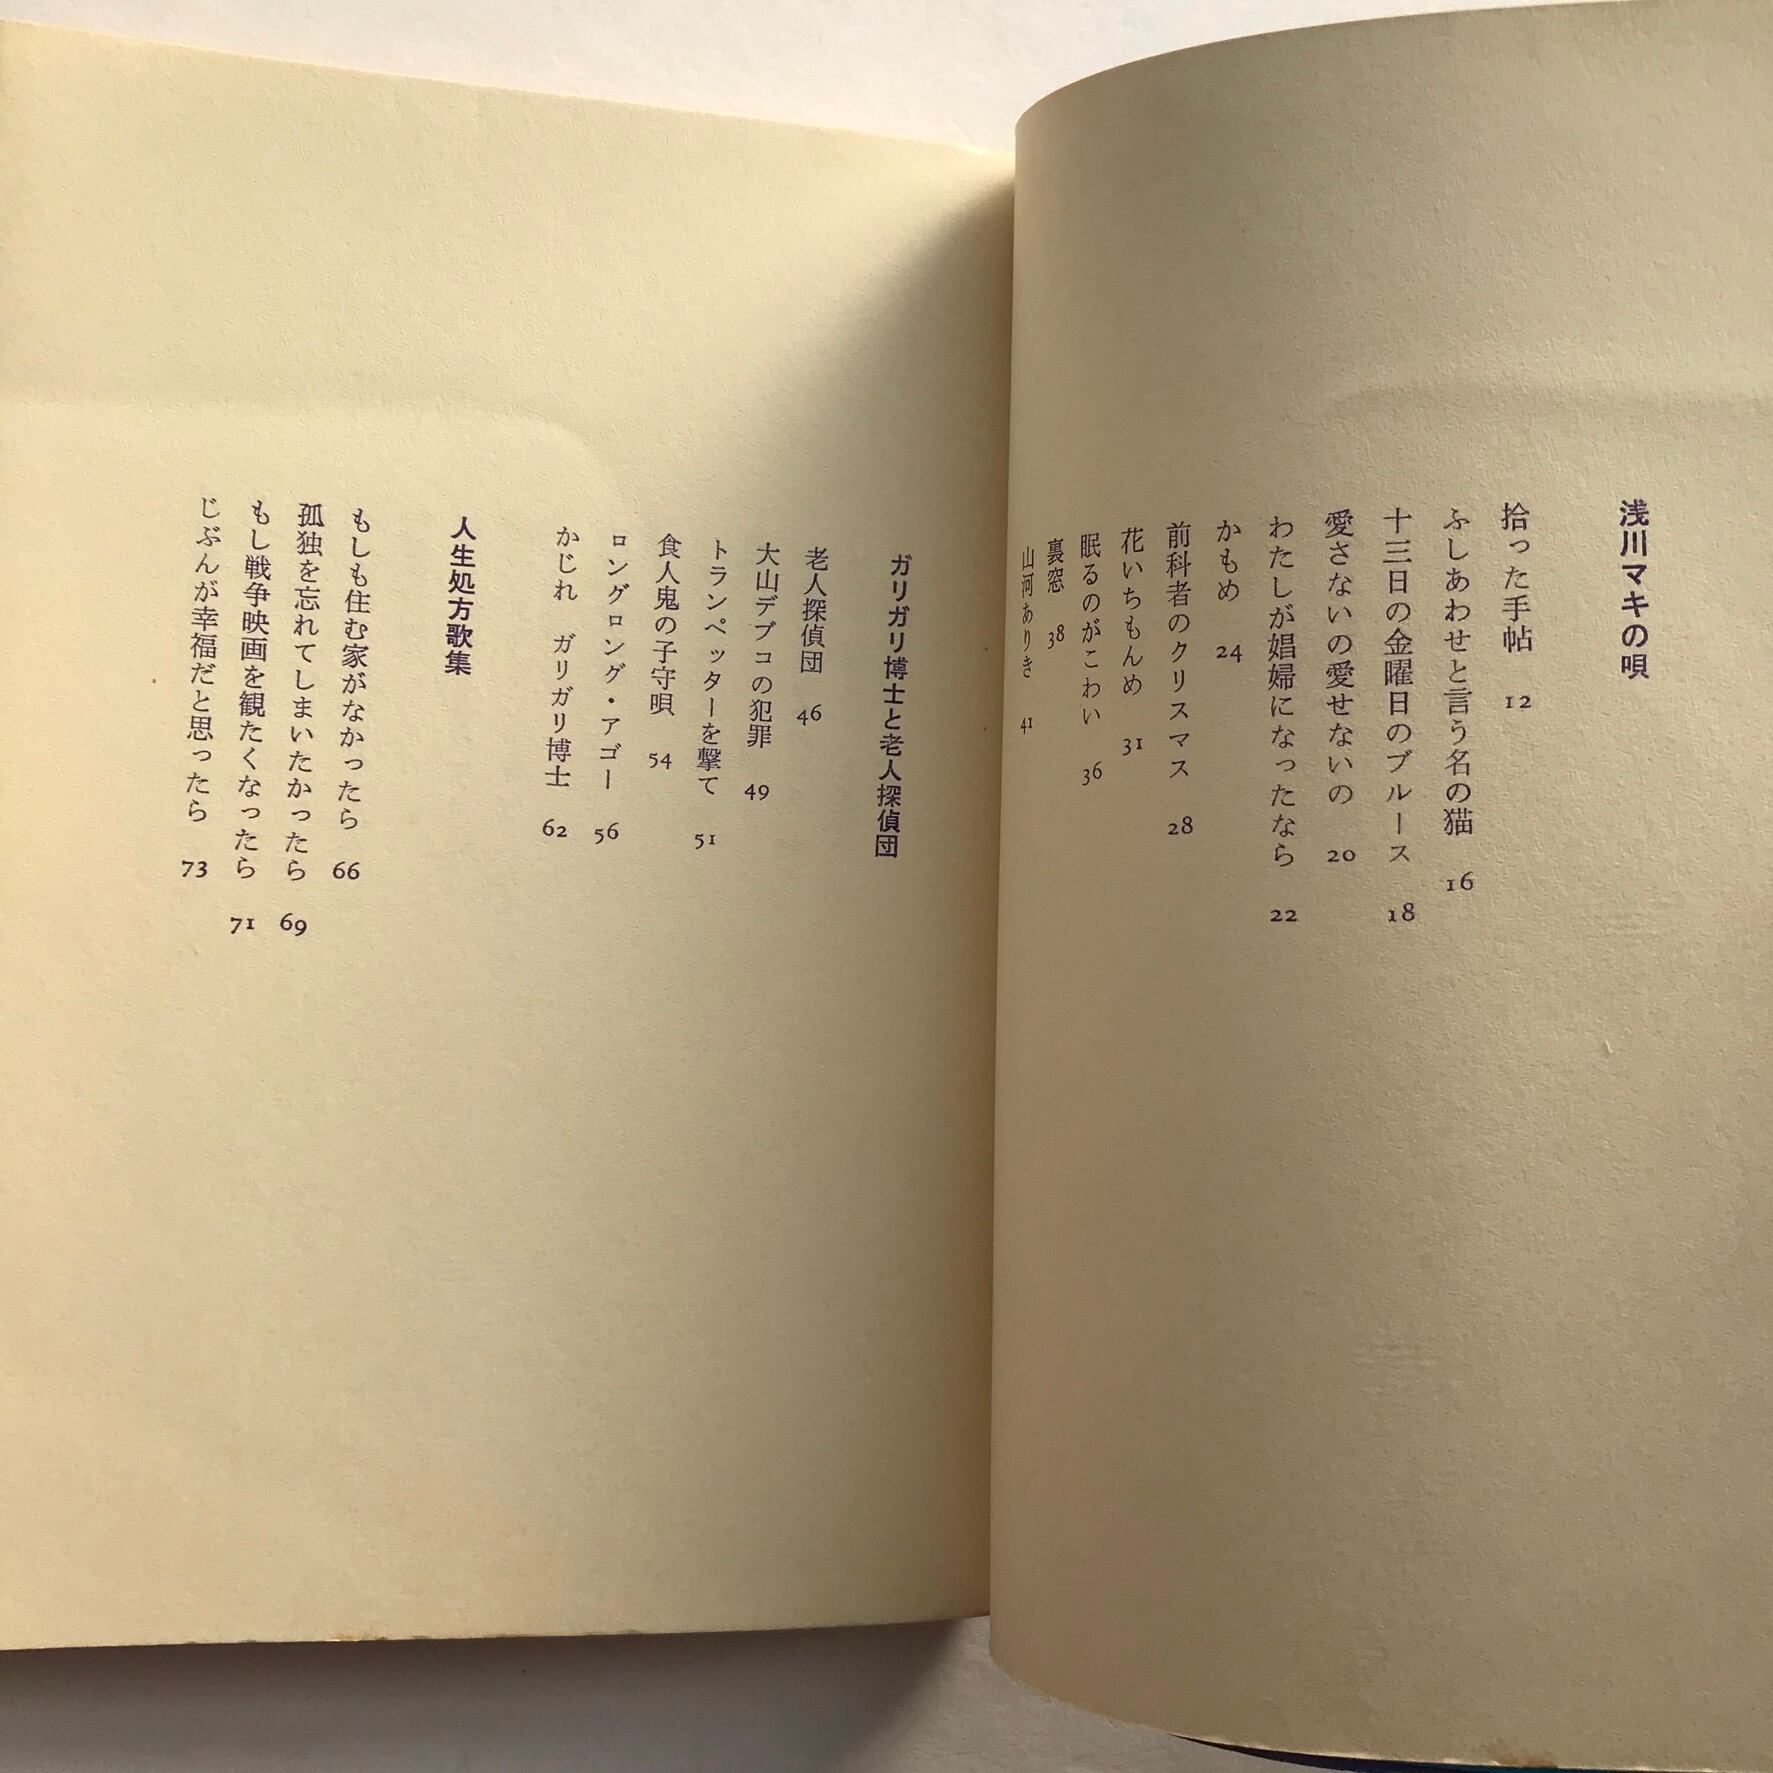 浅川マキの唄
拾った手帖 12
ふしあわせと言う名の猫 16
十三日の金曜日のブルース 18
愛さないの愛せないの 20
わたしが娼婦になったなら 22
かもめ 24
前科者のクリスマス 28
花いちもんめ 31
眠るのがこわい 36
裏窓 38
山河ありき 41
ガリガリ博士と老人探偵団
老人探偵団 46
大山デブコの犯罪 49
トランペッターを撃て 51
食人鬼の子守唄 54
ロングロング・アゴー 56
かじれ ガリガリ博士 62
人生処方歌集
もしも住む家がなかったら 66
孤独を忘れてしまいたかったら 69
もし戦争映画を観たくなったら 71
じぶんが幸福だと思ったら 73